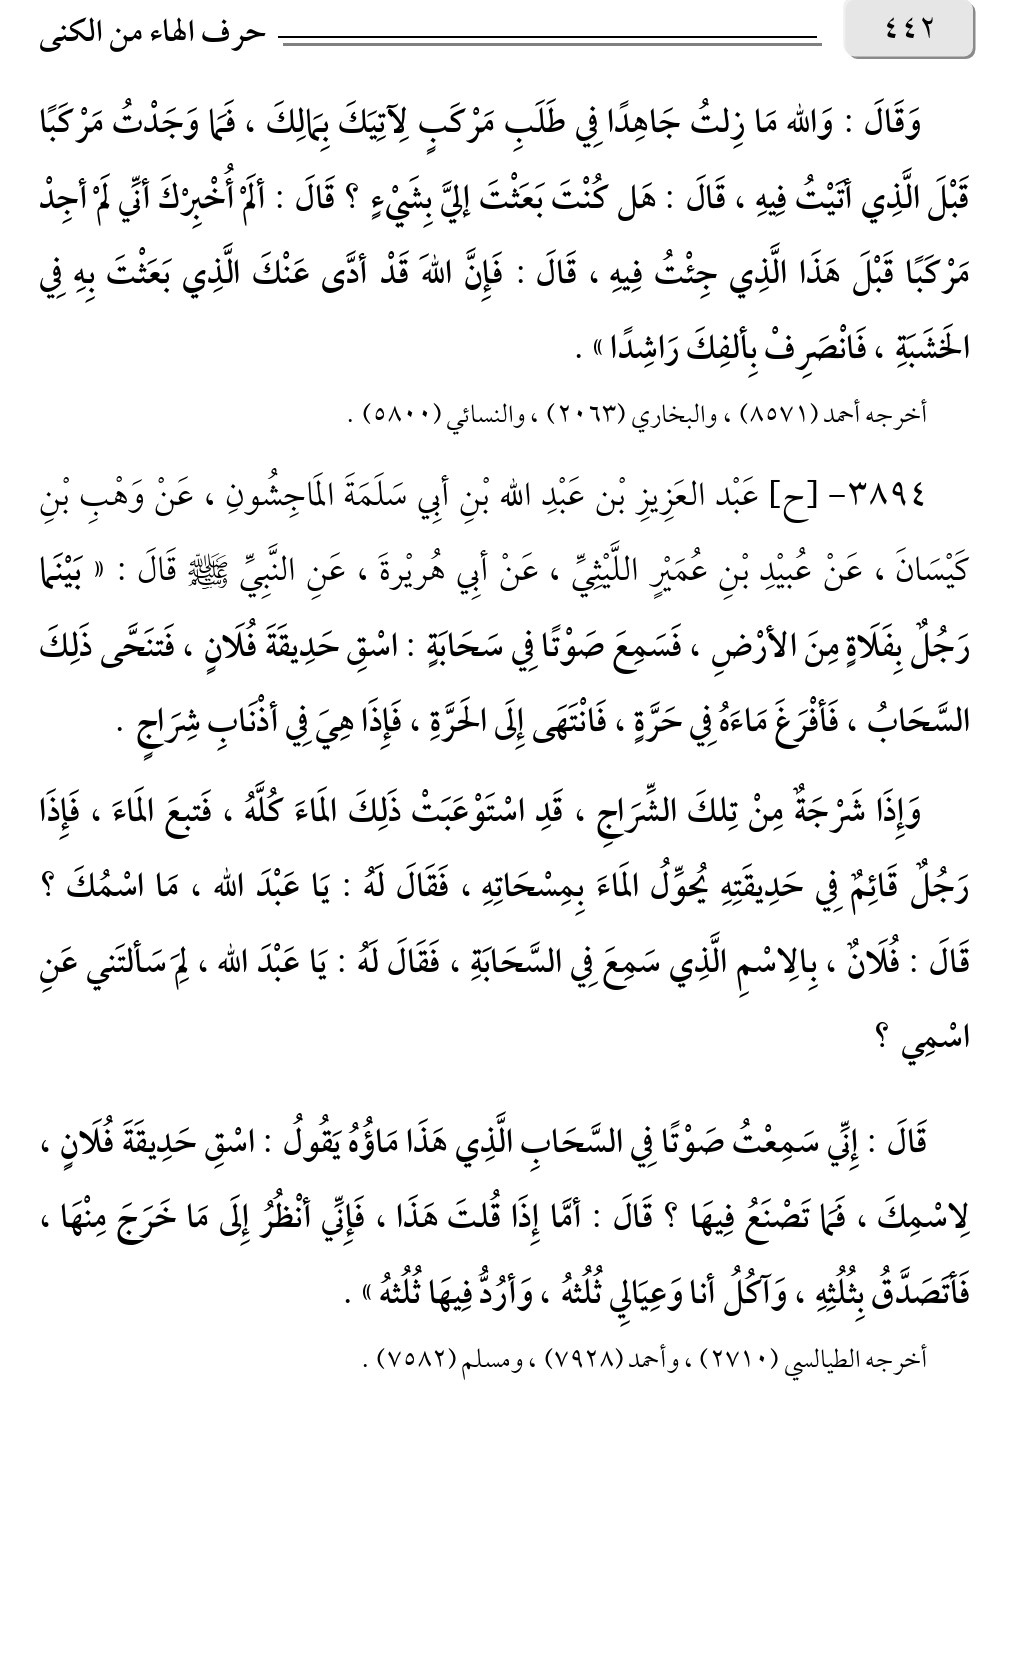 ٤٤٢
حرف الهاء من الكنى
وَقَالَ : وَالله مَا زِلتُ جَاهِدًا فِي طَلَبِ مَرْكَبٍ لِآتِيَكَ بِمَالِكَ ، فَمَا وَجَدْتُ مَرْكَبًا
قَبْلَ الَّذِي أتَيْتُ فِيهِ ، قَالَ : هَل كُنْتَ بَعَثْتَ إليَّ بِشَيْءٍ ؟ قَالَ : ألَمْ أُخْبِرْكَ أنِّي لَمْ أجِدْ
مَرْكَبًا قَبْلَ هَذَا الَّذِي جِئْتُ فِيهِ ، قَالَ : فَإِنَّ اللهَ قَدْ أدَّى عَنْكَ الَّذِي بَعَثْتَ بِهِ فِي
الخَشَبَةِ ، فَانْصَرِفْ بِألفِكَ رَاشِدًا » .
أخرجه أحمد (٨٥٧١) ، والبخاري (٢٠٦٣) ، والنسائي (٥٨٠٠) .
٣٨٩٤- [ح] عَبْد العَزِيزِ بْن عَبْدِ الله بْنِ أبِي سَلَمَةَ المَاجِشُونِ ، عَنْ وَهْبِ بْنِ
كَيْسَانَ ، عَنْ عُبيْدِ بْنِ عُمَيْرٍ اللَّيْثِيِّ ، عَنْ أبي هُريْرةَ ، عَنِ النَّبِيِّ ﷺ قَالَ : « بَيْنَما
رَجُلٌ بِفَلَاةٍ مِنَ الأرْضِ ، فَسَمِعَ صَوْتًا فِي سَحَابَةٍ : اسْقِ حَدِيقَةَ فُلَانٍ ، فَتنَحَّى ذَلِكَ
السَّحَابُ ، فَأفْرَغَ مَاءَهُ فِي حَرَّةٍ ، فَانْتَهَى إِلَى الحَرَّةِ ، فَإِذَا هِيَ فِي أذْنَابِ شِرَاجٍ .
وَإِذَا شَرْجَةٌ مِنْ تِلكَ الشِّرَاجِ ، قَدِ اسْتَوْعَبَتْ ذَلِكَ المَاءَ كُلَّهُ ، فَتبعَ المَاءَ ، فَإِذَا
رَجُلٌ قَائِمٌ فِي حَدِيقَتِهِ يُحوِّلُ المَاءَ بِمِسْحَاتِهِ ، فَقَالَ لَهُ : يَا عَبْدَ الله ، مَا اسْمُكَ ؟
قَالَ : فُلَانٌ ، بِالِاسْمِ الَّذِي سَمِعَ فِي السَّحَابَةِ ، فَقَالَ لَهُ : يَا عَبْدَ الله ، لِمَ سَألتَني عَنِ
اسْمِي ؟
قَالَ : إِنِّي سَمِعْتُ صَوْتًا فِي السَّحَابِ الَّذِي هَذَا مَاؤُهُ يَقُولُ : اسْقِ حَدِيقَةَ فُلَانٍ ،
لِاسْمِكَ ، فَمَا تَصْنَعُ فِيهَا ؟ قَالَ : أمَّا إِذَا قُلتَ هَذَا ، فَإِنِّي أنْظُرُ إِلَى مَا خَرَجَ مِنْهَا ،
فَأتَصَدَّقُ بِثُلُثِهِ ، وَآكُلُ أنا وَعِيَالِي ثُلُثهُ ، وَأرُدُّ فِيهَا ثُلُثهُ » .
أخرجه الطيالسي (٢٧١٠) ، وأحمد (٧٩٢٨) ، ومسلم (٧٥٨٢) .